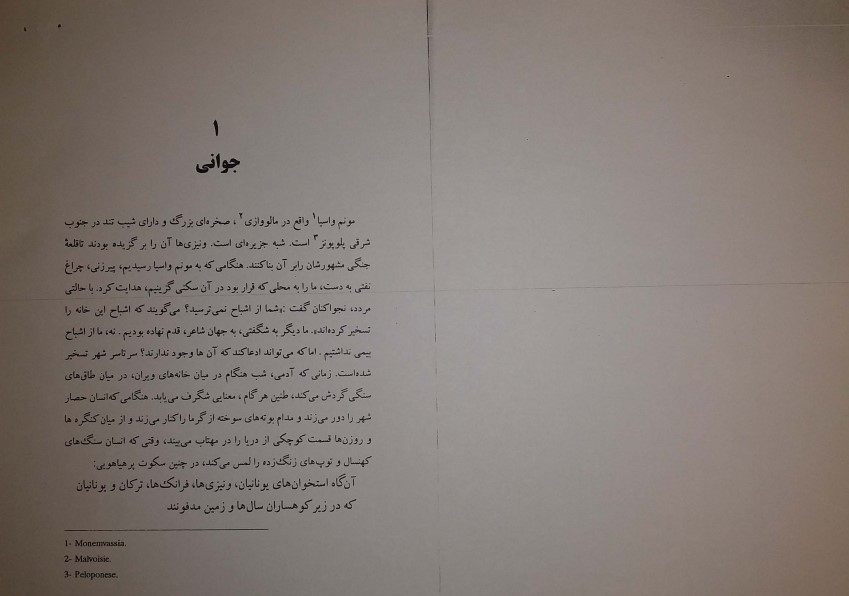 ۱
جوانی
مونم واسیا۱ واقع در مالووازی۲، صخره‌ای بزرگ و دارای شیب تند در جنوب
شرقی پلوپونز۳ است. شبه جزیره‌ای است. ونیزی‌ها آن را بر گزیده بودند تاقلعهٔ
جنگی مشهورشان رابر آن بناکنند. هنگامی که به مونم واسیا رسیدیم، پیرزنی، چراغ
نفتی به دست، ما را به محلی که قرار بود در آن سکنی گزینیم، هدایت کرد. با حالتی
مردد، نجواکنان گفت :«شما از اشباح نمی‌ترسید؟ می‌گویند که اشباح این خانه را
تسخیر کرده‌اند». ما دیگر به شگفتی، به جهان شاعر، قدم نهاده بودیم . نه، ما از اشباح
بیمی نداشتیم . اماکه می‌تواند ادعاکند که آن ها وجود ندارند؟ سرتاسر شهر تسخیر
شده‌است. زمانی که آدمی، شب هنگام در میان خانه‌های ویران، در میان طاق‌های
سنگی گردش می‌کند، طنین هر گام ، معنایی شگرف می‌یابد. هنگامی که‌انسان حصار
شهر را دور می‌زند و مدام بوته‌های سوخته از گرما راکنار می‌زند و از میان کنگره ها
و روزن‌ها قسمت کوچکی از دریا را در مهتاب می‌بیند، وقتی که انسان سنگ‌های
کهنسال و توپ‌های زنگ‌زده را لمس می‌کند، در چنین سکوت پرهیاهویی:
آن‌گاه استخوان‌های یونانیان، ونیزی‌ها، فرانک‌ها، ترکان و یونانیان
که در زیر کوهساران سال‌ها و زمین مدفونند
1- Monemvassia.
2- Malvoisie.
3- Peloponese.